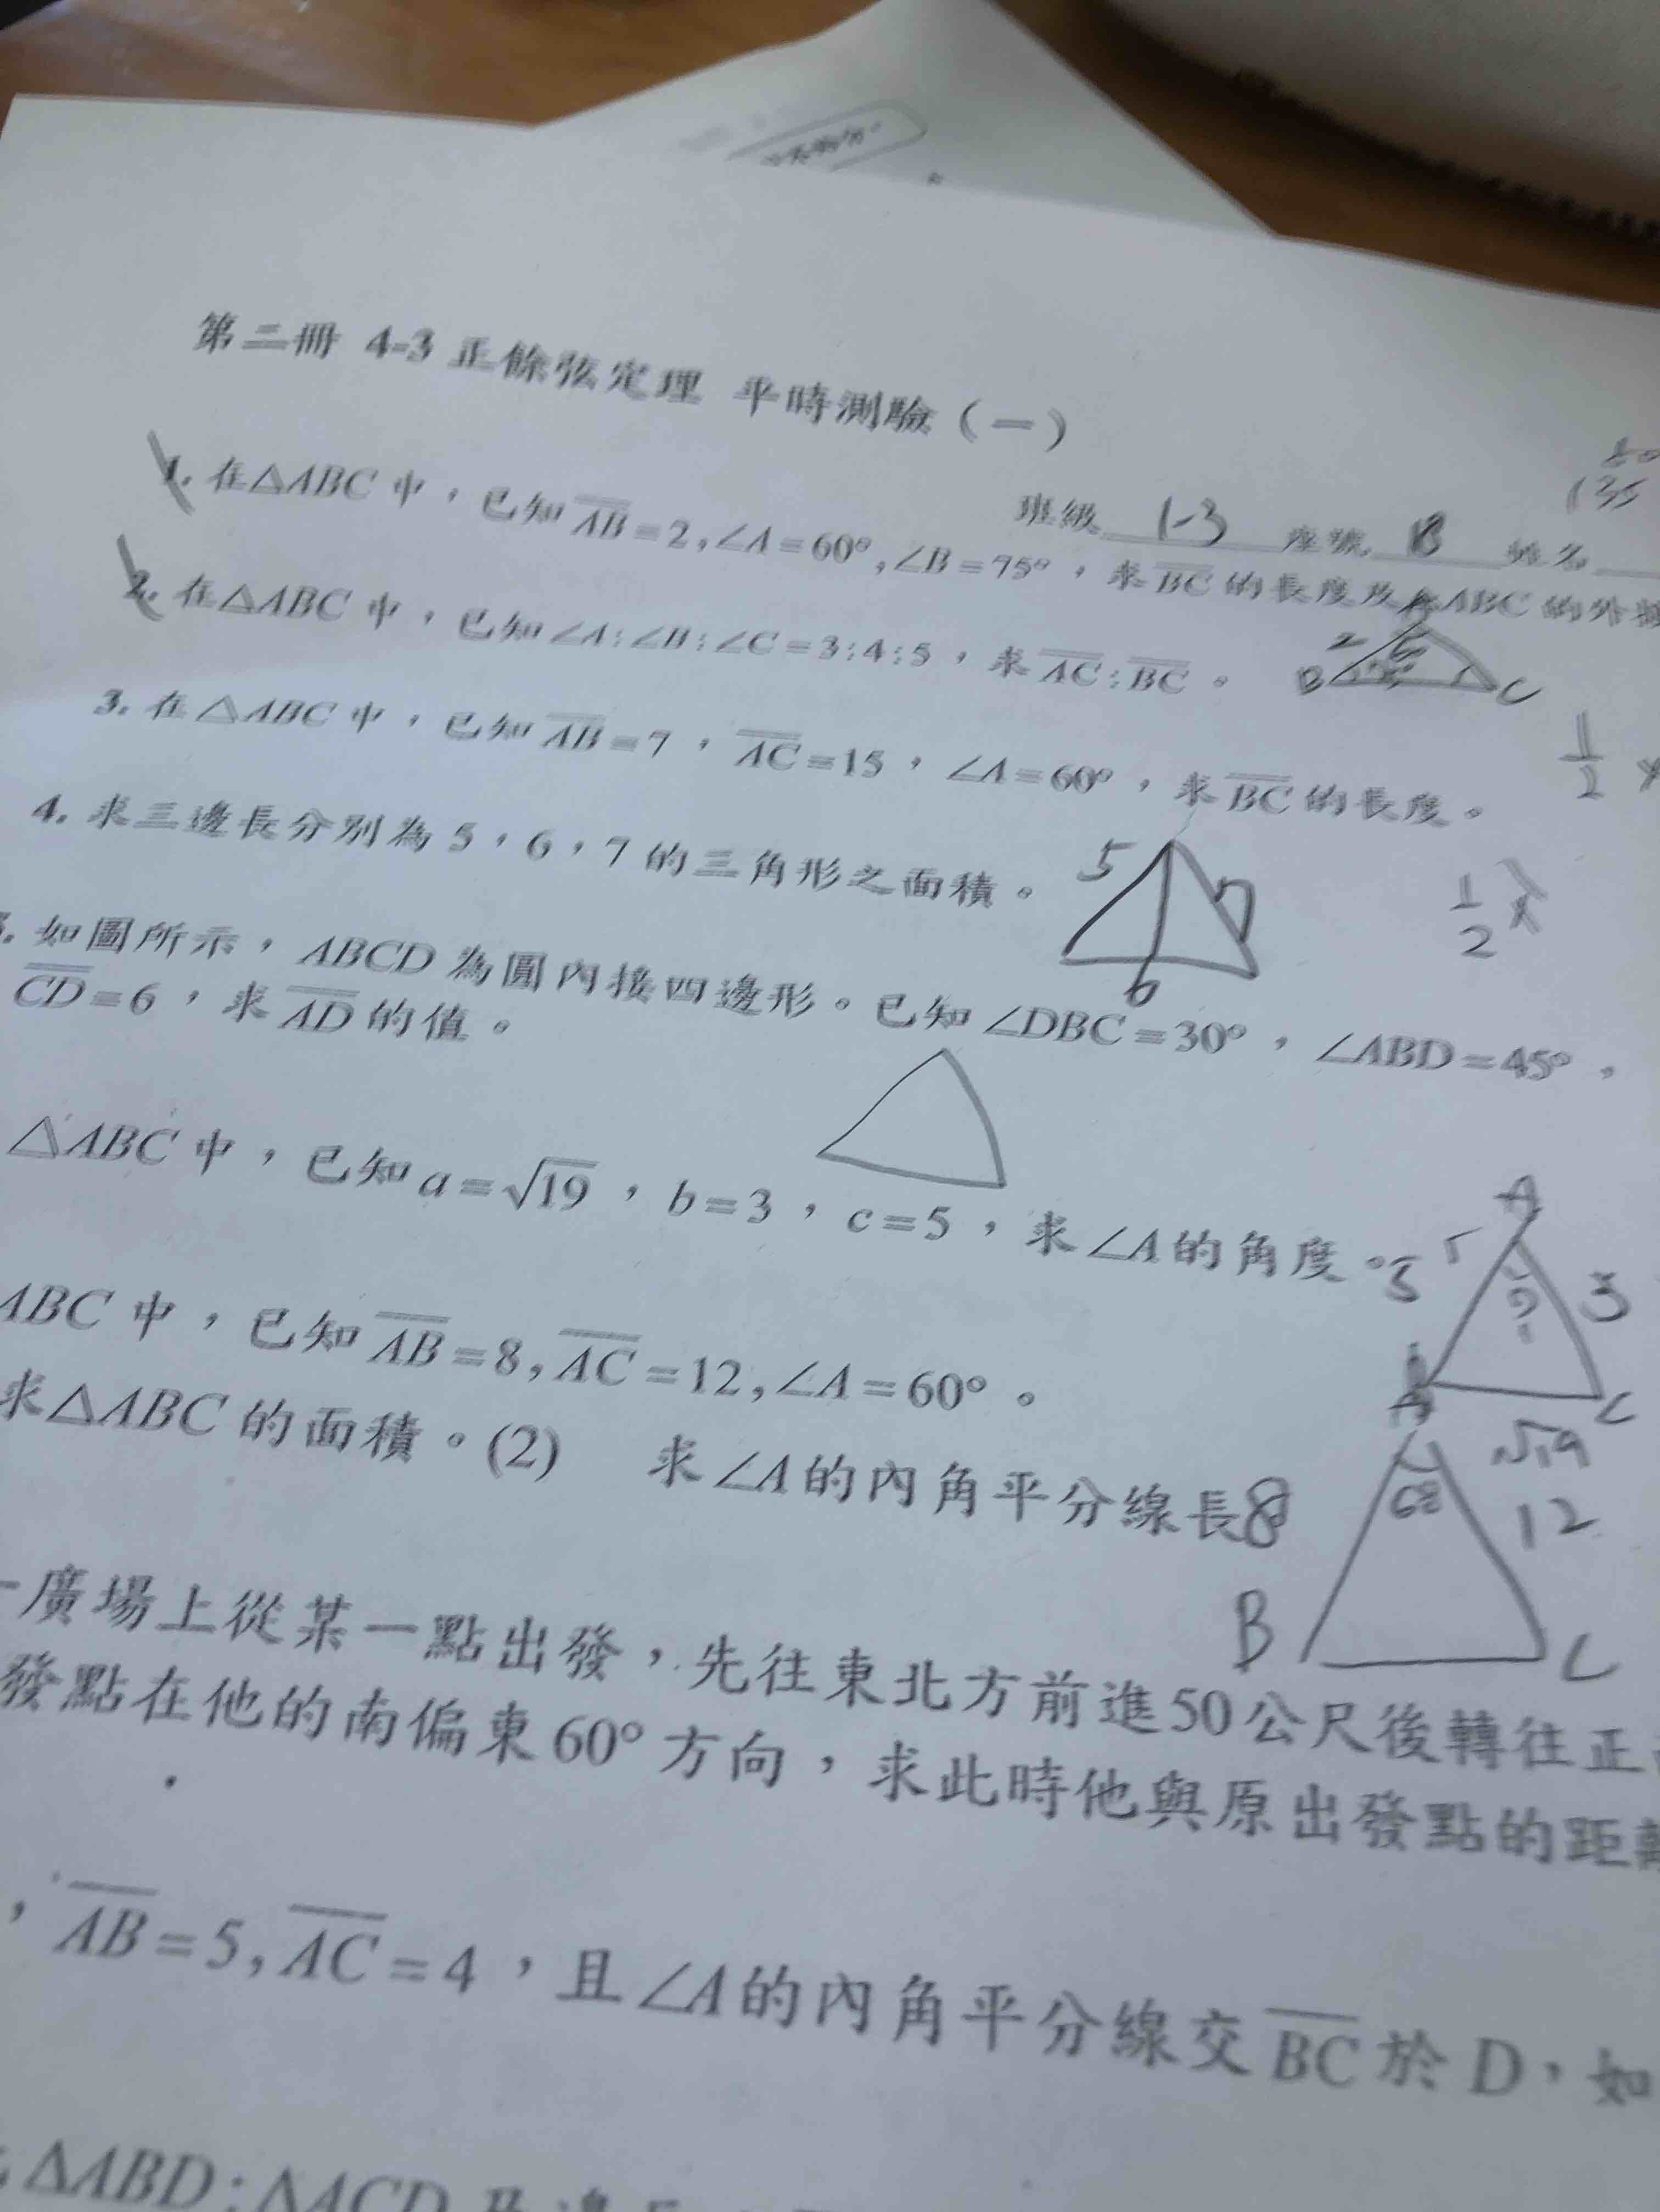 第二冊 4-3 正餘弦定理 平時測驗（一）
班級 1-3 座號 姓名
1. 在△ABC 中，已知 AB=2,∠A=60°,∠B=75°，求 BC 的長度及△ABC 的外
2. 在△ABC 中，已知∠A:∠B:∠C=3:4:5，求 AC:BC。
2
B
C
3. 在△ABC 中，已知 AB=7，AC=15，∠A=60°，求 BC 的長度。
1/2
4. 求三邊長分別為 5，6，7 的三角形之面積。
5
7
6
1/2
. 如圖所示，ABCD 為圓內接四邊形。已知∠DBC=30°，∠ABD=45°，
CD=6，求 AD 的值。
△ABC 中，已知 a=√19，b=3，c=5，求∠A 的角度。
A
5
?
3
C
√19
ABC 中，已知 AB=8,AC=12,∠A=60°。
求△ABC 的面積。(2) 求∠A 的內角平分線長
A
8
12
B
C
一廣場上從某一點出發，先往東北方前進50公尺後轉往正
發點在他的南偏東60°方向，求此時他與原出發點的距離
，AB=5,AC=4，且∠A的內角平分線交BC於D，如
ΔABD:ΔACD